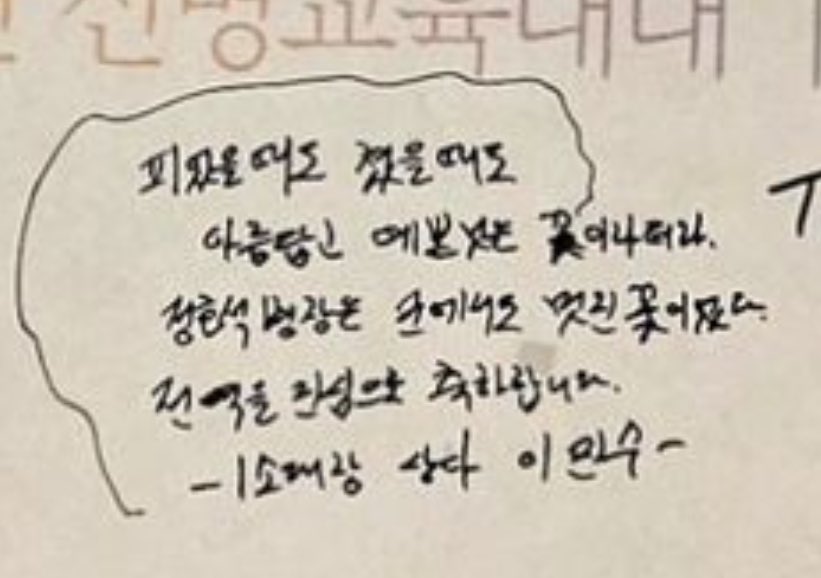 신병교육대대
피었을 때도 졌을 때도
아름답고 예쁜 것은 꽃이라더라.
정한석 병장은 군에서도 멋진 꽃이었다.
전역을 진심으로 축하합니다.
-1소대장 상사 이민수-